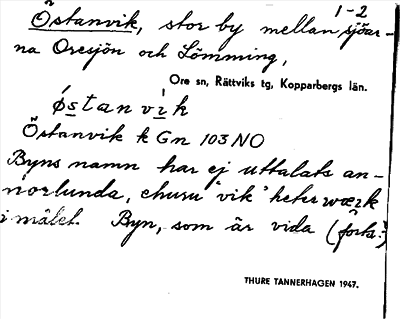 1-2
Östanvik, stor by mellan sjöar-
na Oresjön och Lömming,
Ore sn, Rättviks tg, Kopparbergs län.
østanvik
Östanvik k Gn 103 NO
Byns namn har ej uttalats an-
norlunda, churu "vik" heter
i målet. Byn, som är vida (forts.)
THURE TANNERHAGEN 1947.